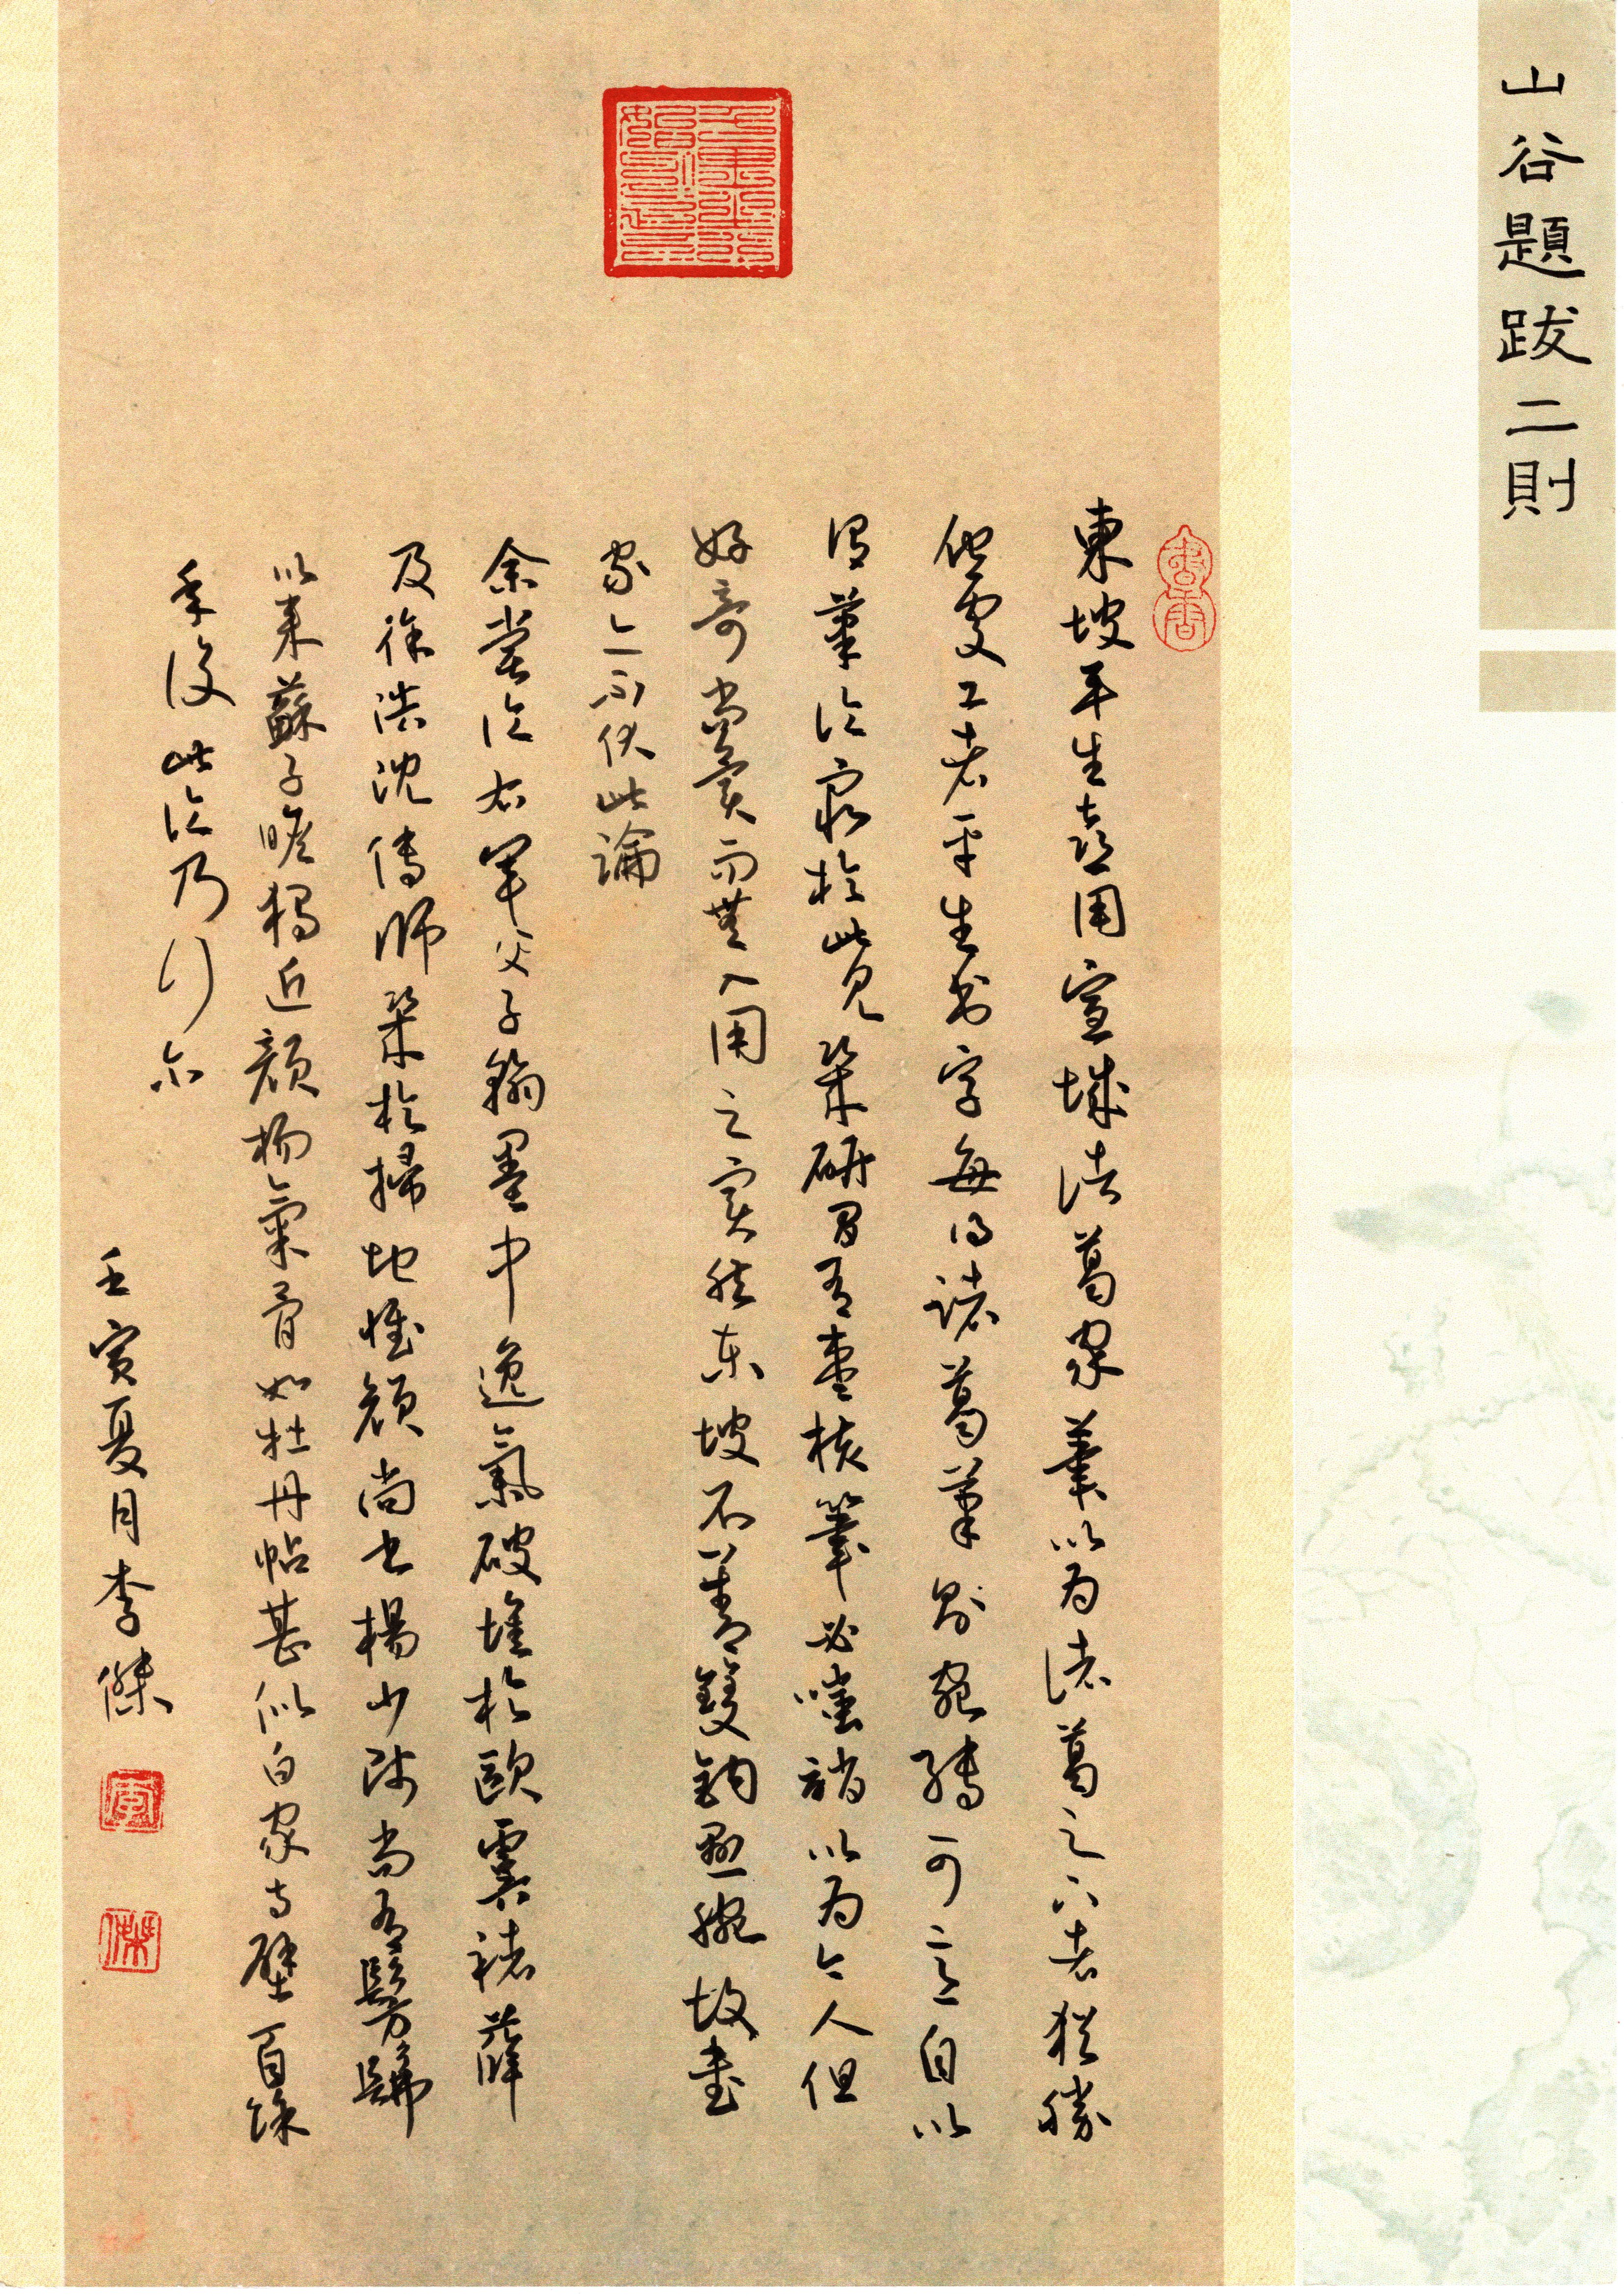 山谷題跋二則
書香
東坡平生喜用宣城諸葛家筆以為諸葛之下者猶勝
他處工者平生书字每得諸葛筆則宛轉可意自以
謂筆論窮於此見幾研間有棗核筆必嗤誚以為今人但
好奇尚異而無入用之實然东坡不善雙鉤懸腕故書
家亦不伏此論
余嘗論右軍父子翰墨中逸氣破壞於歐虞褚薛
及徐浩沈傳師幾於掃地惟顏尚書楊少師尚有髣髴
以來蘇子瞻獨近顏楊氣骨如牡丹帖甚似白家寺壁百餘
年後此論乃行尔
壬寅夏月李傑
傑